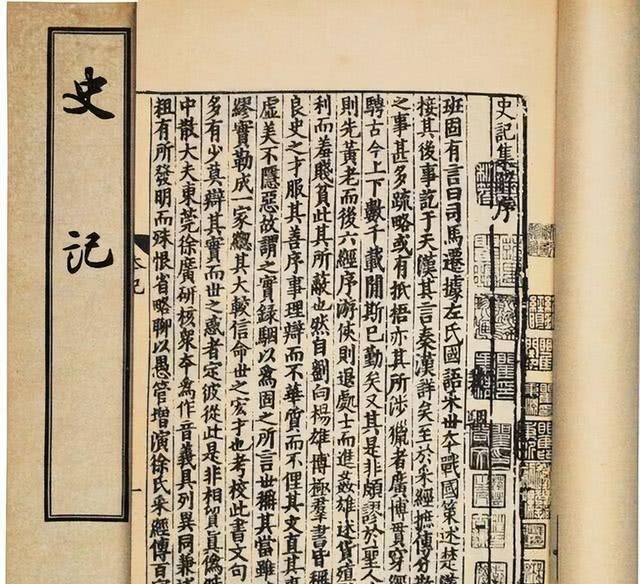 史記集解序
班固有言曰司馬遷據左氏國語采丗本戰國策述楚漢
接其後事訖于天漢其言秦漢詳矣至於采經摭傳分散
之事甚多疏略或有抵梧亦其所涉獵者廣博貫穿經
騁古今上下數千載閒斯已勤矣又其是非頗謬於聖人
則先黃老而後六經序游俠則退處士而進姦雄述貨殖
利而羞賤貧此其所蔽也然自劉向楊雄博極羣書皆稱
良史之才服其善序事理辯而不華質而不俚其文直其
虛美不隱惡故謂之實録駰以爲固之所言丗稱其當雖
繆實勒成一家緫其大較信命丗之宏才也考校此書文句
多有少莫辯其實而丗之惑者定彼從此是非相貿眞僞舛
中散大夫東莞徐廣研核衆本爲作音義具列異同兼
粗有所發明而殊恨省略聊以愚管增演徐氏采經傳百
一
史記